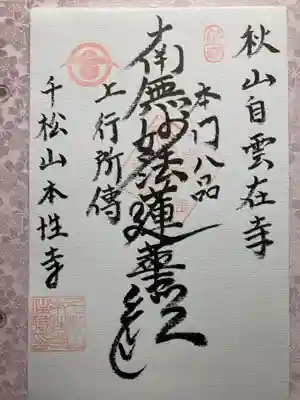 秋山自雲在寺
本门八品
南無妙法蓮華経
上行所傳
千松山本性寺